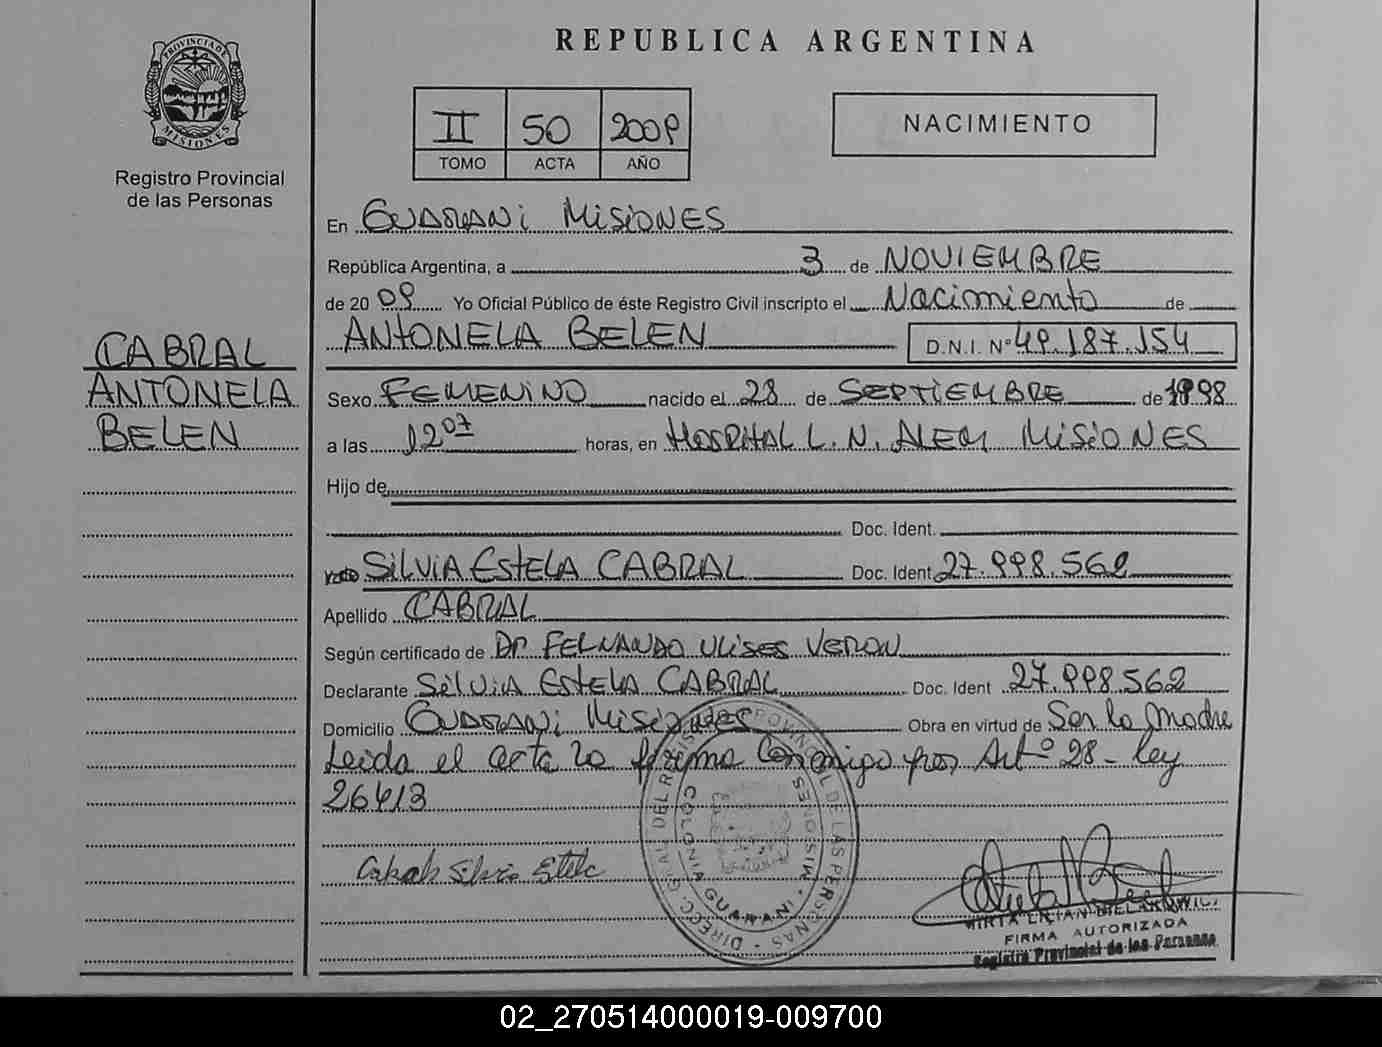 REPUBLICA ARGENTINA
PROVINCIA DE MISIONES
Registro Provincial
de las Personas
II 50 2009
TOMO ACTA AÑO
NACIMIENTO
En GUARANI MISIONES
República Argentina, a 3 de NOVIEMBRE
de 20 09 Yo Oficial Público de éste Registro Civil inscripto el Nacimiento de
ANTONELA BELEN D.N.I. N° 49.187.154
CABRAL
ANTONELA
BELEN
Sexo FEMENINO nacido el 28 de SEPTIEMBRE de 1998
a las 12 07 horas, en HOSPITAL L.N. ALEM MISIONES
Hijo de
Doc. Ident.
SILVIA ESTELA CABRAL Doc. Ident 27.998.562
Apellido CABRAL
Según certificado de Dr FERNANDO ULISES VERON
Declarante SILVIA ESTELA CABRAL Doc. Ident 27.998.562
Domicilio GUARANI MISIONES Obra en virtud de Ser la madre
Leida el acta la firma conmigo por Art° 28 - ley
26413
Cabral Silvia Estela
DIRECC. GRAL. DEL REGISTRO PROVINCIAL DE LAS PERSONAS
COLONIA GUARANI - MISIONES
MIRTA LILIAN BIELAKOWICZ
FIRMA AUTORIZADA
Registro Provincial de las Personas
02_270514000019-009700